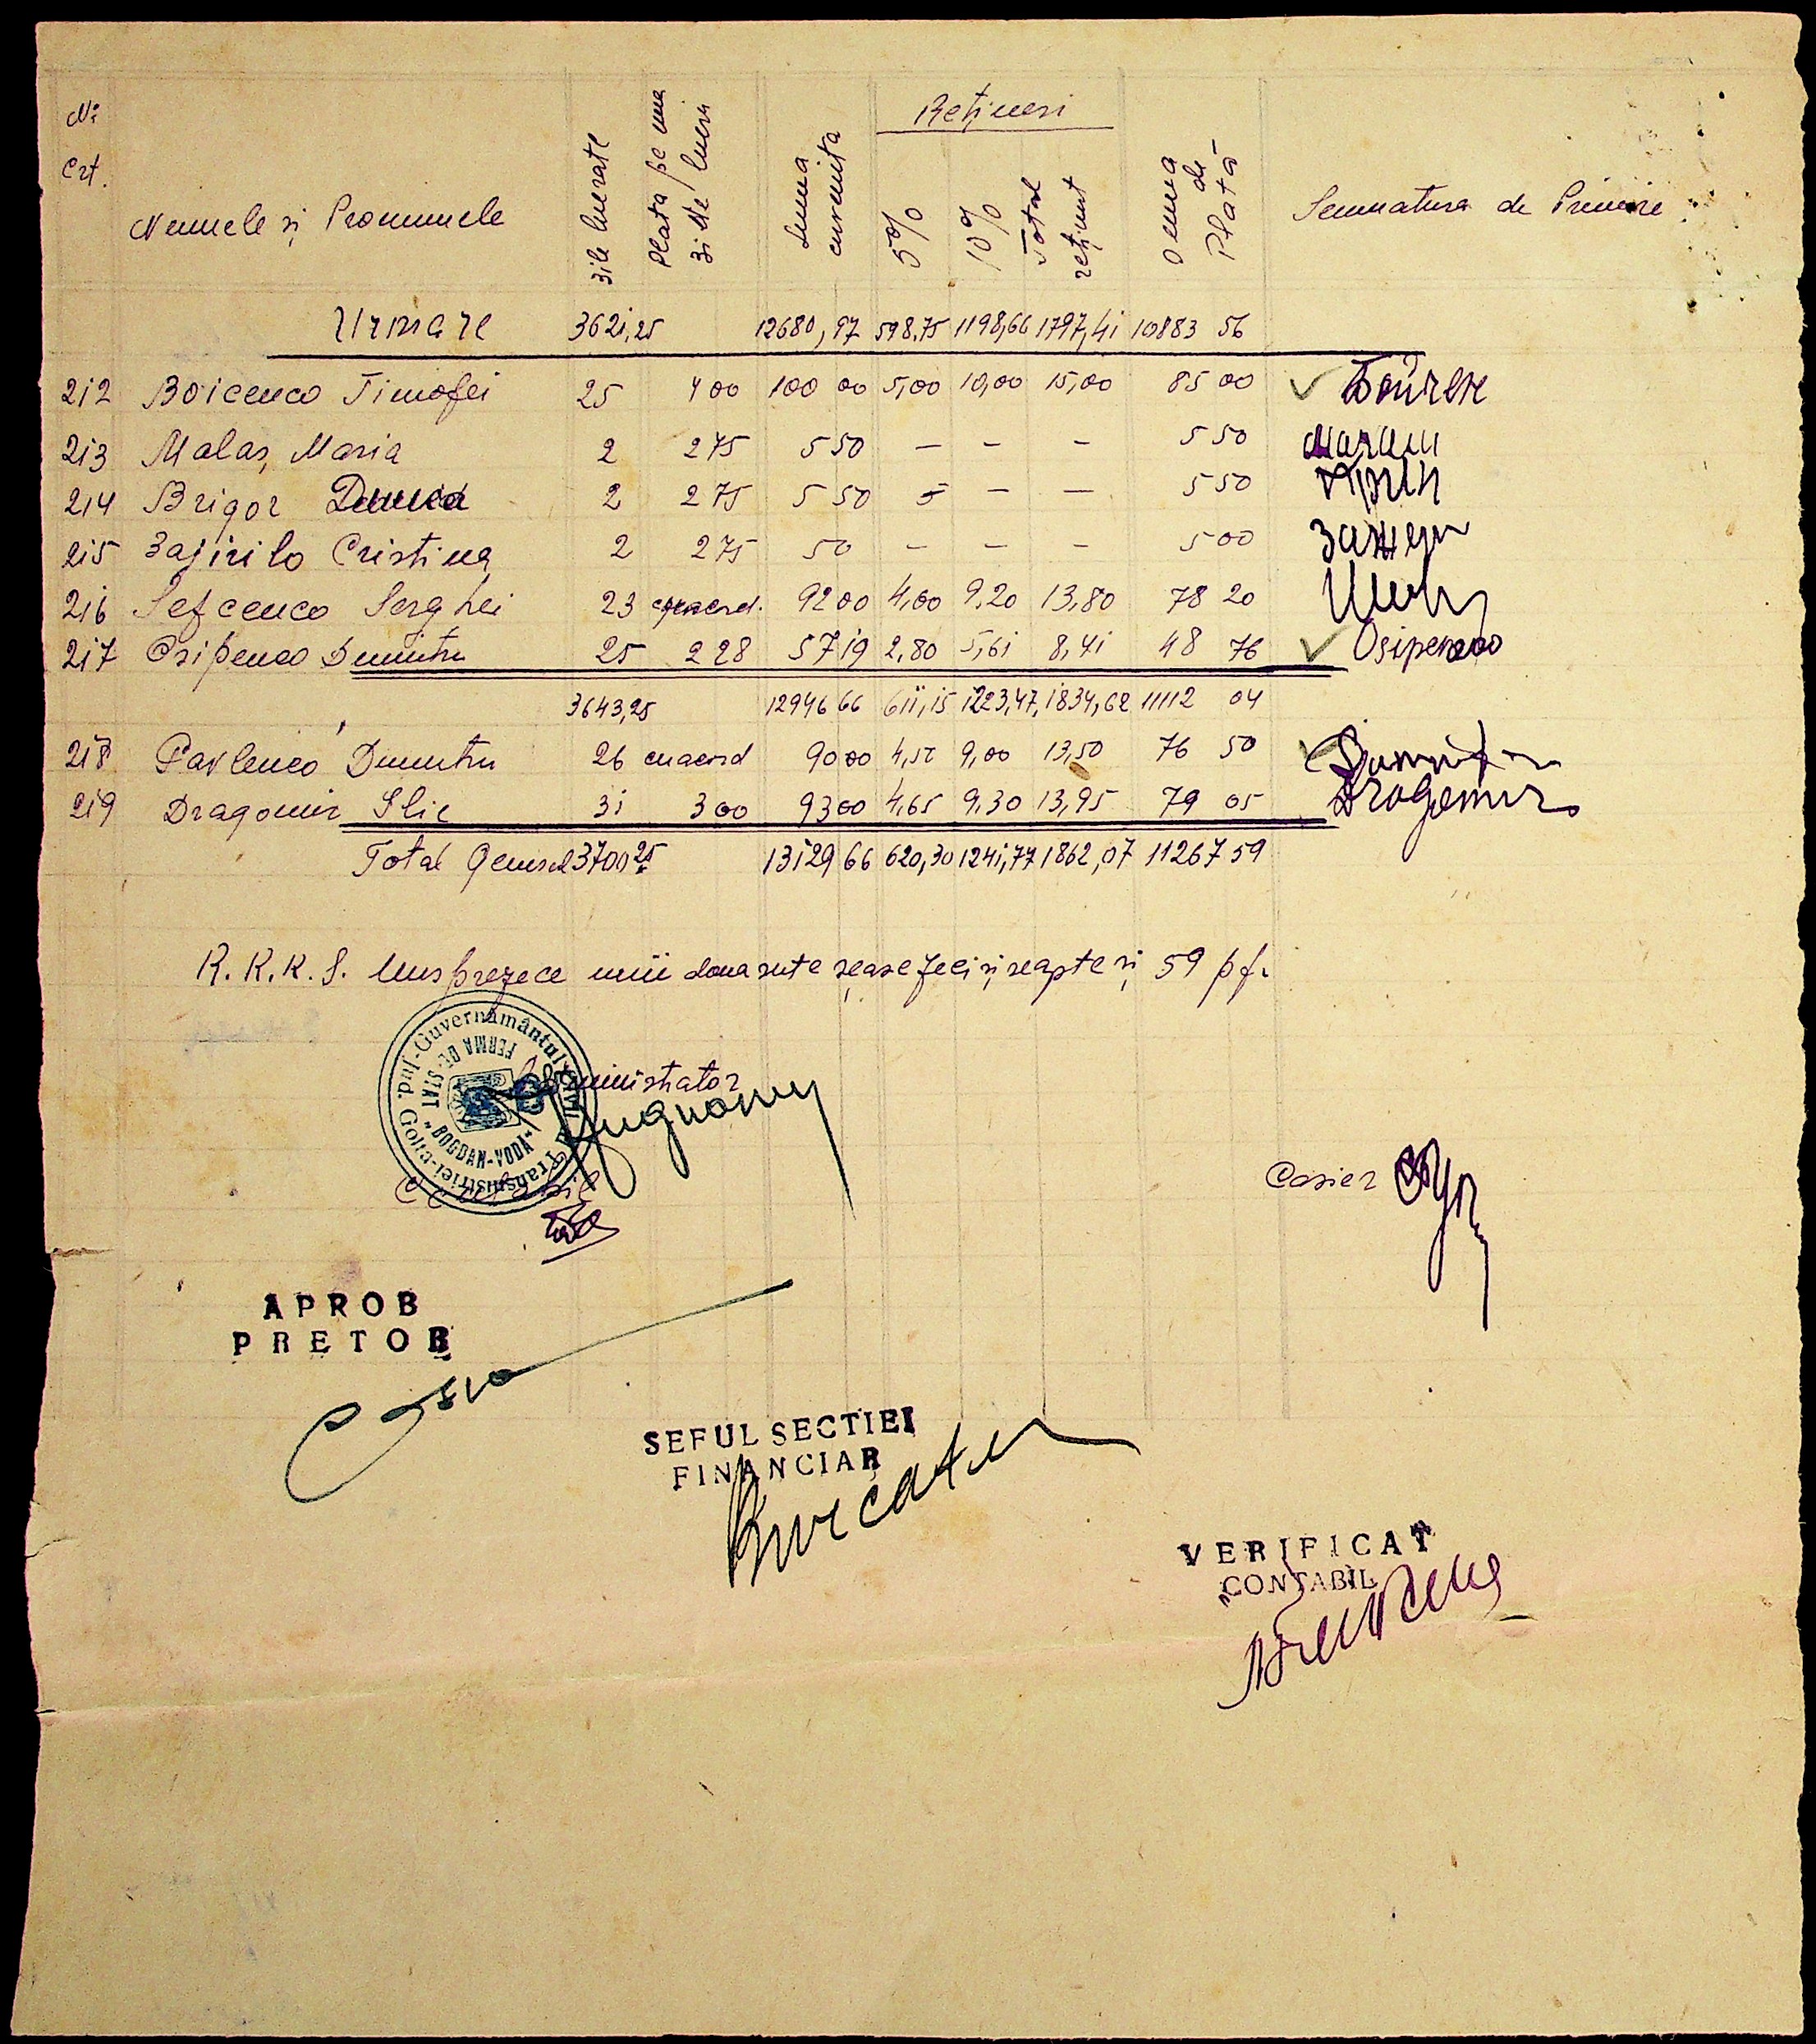 Nr Crt. Numele și Pronumele zile lucrate Plata pe una zi de lucru Suma cuvenita Rețineri 5% 10% Total reținut Suma de Plată Semnatura de Primire
Urmare 3621,25 12680,97 598,75 1198,66 1797,41 10883 56
212 Boicenco Timofei 25 4 00 100 00 5,00 10,00 15,00 85 00
213 Malaș Maria 2 2 75 5 50 — — — 5 50
214 Brigor 2 2 75 5 50 — — — 5 50
215 Zajirilo Cristina 2 2 75 50 — — — 5 00
216 Sefcenco Serghei 23 92 00 4,60 9,20 13,80 78 20
217 Osipenco Dumitru 25 2 28 57 19 2,80 5,61 8,41 48 76 Osipenco
3643,25 12946 66 611,15 1223,47 1834,62 11112 04
218 Pavlenco Dumitru 26 cu acord 90 00 4,50 9,00 13,50 76 50
219 Dragomir Ilie 31 3 00 93 00 4,65 9,30 13,95 79 05 Dragomir
Total General 3700 25 13129 66 620,30 1241,77 1862,07 11267 59
R.K.K.S. Unsprezece mii doua sute șasezeci și șapte și 59 pf.
Guvernământul Transnistriei-Jud. Golta
FERMA DE STAT "BOGDAN-VODA"
Administrator
Contabil
Casier
APROB
PRETOR
SEFUL SECTIEI
FINANCIAR
VERIFICAT
CONTABIL